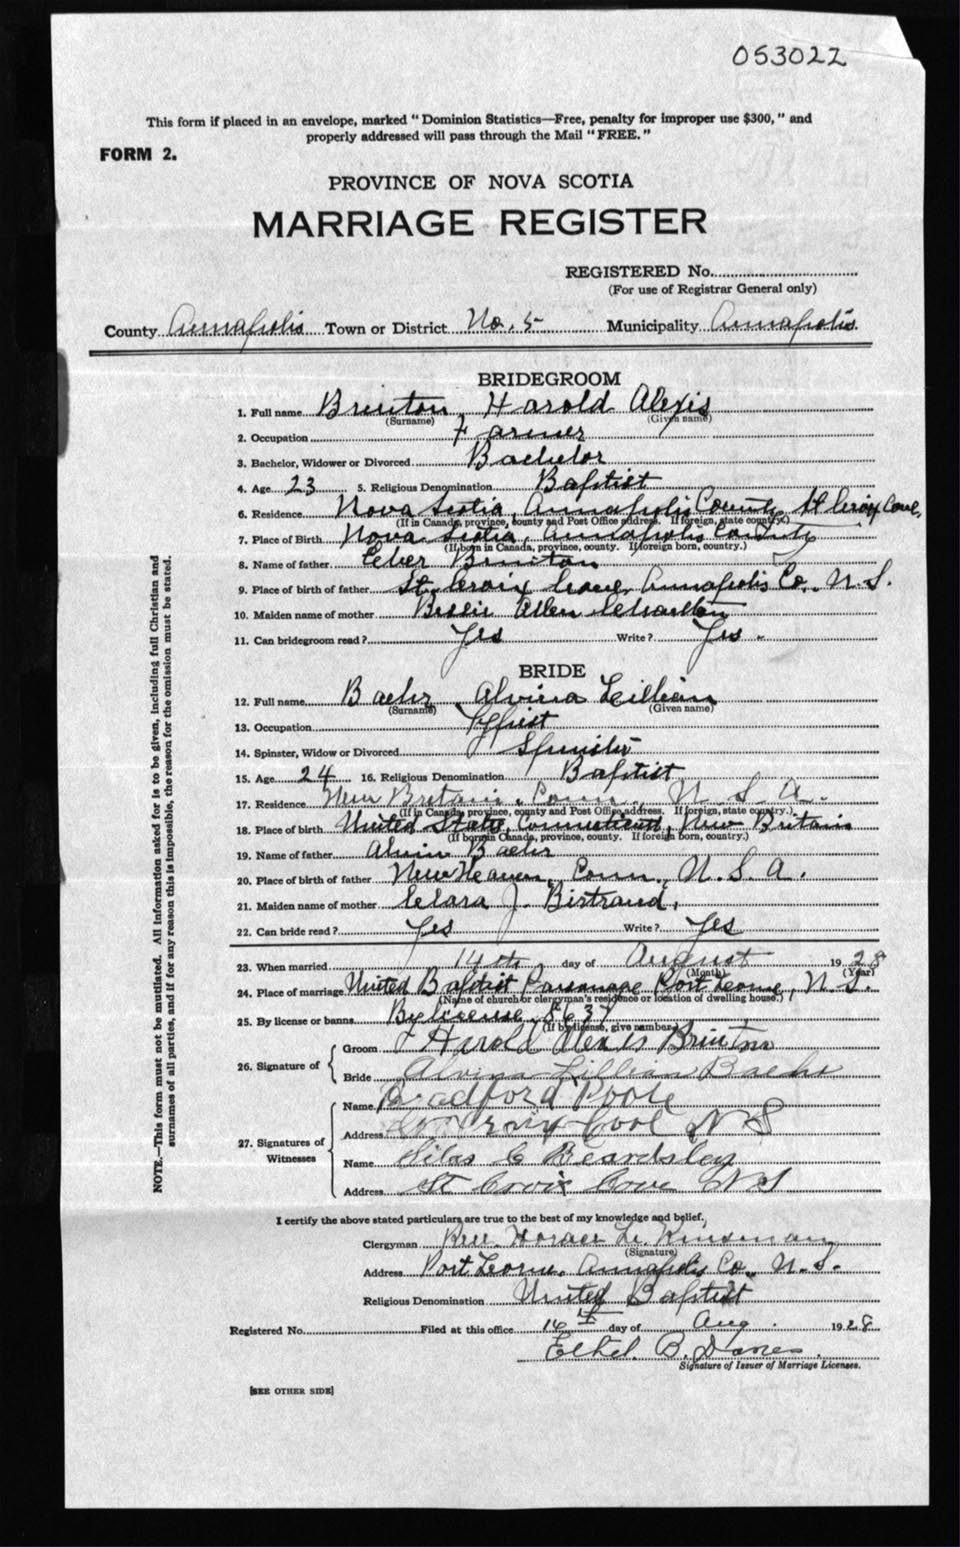 053022
This form if placed in an envelope, marked "Dominion Statistics—Free, penalty for improper use $300," and
properly addressed will pass through the Mail "FREE."
FORM 2.
PROVINCE OF NOVA SCOTIA
MARRIAGE REGISTER
REGISTERED No.
(For use of Registrar General only)
County Annapolis Town or District No. 5 Municipality Annapolis
BRIDEGROOM
1. Full name Brinton, Harold Alexis
(Surname) (Given name)
2. Occupation Farmer
3. Bachelor, Widower or Divorced Bachelor
4. Age 23 5. Religious Denomination Baptist
6. Residence Nova Scotia, Annapolis County, St Croix Cove,
(If in Canada, province, county and Post Office address. If foreign, state country.)
7. Place of Birth Nova Scotia, Annapolis County
(If born in Canada, province, county. If foreign born, country.)
8. Name of father Eber Brinton
9. Place of birth of father St. Croix Cove, Annapolis Co., N.S.
10. Maiden name of mother Bessie Allen
11. Can bridegroom read? Yes Write? Yes
BRIDE
12. Full name Baehr Alvina Lillian
(Surname) (Given name)
13. Occupation Typist
14. Spinster, Widow or Divorced Spinster
15. Age 24 16. Religious Denomination Baptist
17. Residence New Britain, Conn., U.S.A.
(If in Canada, province, county and Post Office address. If foreign, state country.)
18. Place of birth United States, Connecticut, New Britain
(If born in Canada, province, county. If foreign born, country.)
19. Name of father Alvin Baehr
20. Place of birth of father New Heaven, Conn., U.S.A.
21. Maiden name of mother Clara J. Birtrand,
22. Can bride read? Yes Write? Yes
23. When married 14th day of August 1928
(Month) (Year)
24. Place of marriage United Baptist Parsonage Port Lorne, N.S.
(Name of church or clergyman's residence or location of dwelling house.)
25. By license or banns By license,
(If by license, give number)
26. Signature of Groom Harold Alexis Brinton
Bride Alvina Lillian Baehr
27. Signatures of Witnesses Name Bradford Poole
Address St Croix Cove N S
Name Silas C Beardsley
Address St Croix Cove N S
I certify the above stated particulars are true to the best of my knowledge and belief,
Clergyman Rev. Horace L. Kinsman
(Signature)
Address Port Lorne, Annapolis Co., N.S.
Religious Denomination United Baptist
Registered No. Filed at this office 16th day of Aug. 1928
Ethel B. Danes
Signature of Issuer of Marriage Licenses.
[SEE OTHER SIDE]
NOTE.—This form must not be mutilated. All information asked for is to be given, including full Christian and
surnames of all parties, and if for any reason this is impossible, the reason for the omission must be stated.